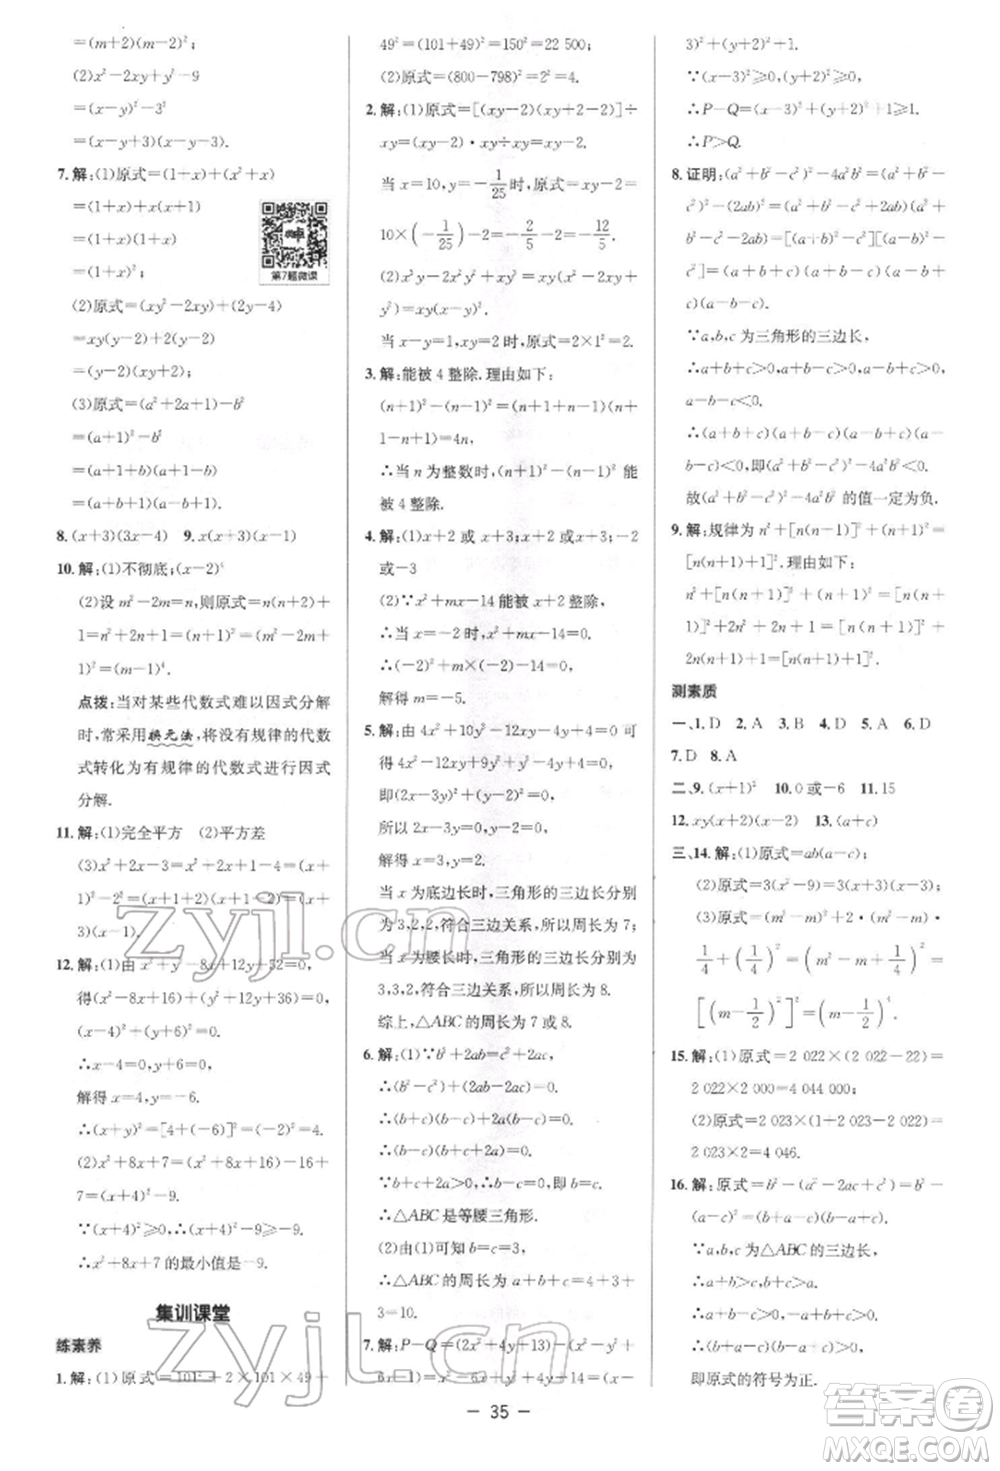 =(m+2)(m-2)²;
(2)x²-2xy+y²-9
=(x-y)²-3²
=(x-y+3)(x-y-3).
7.解:(1)原式=(1+x)+(x²+x)
=(1+x)+x(x+1)
=(1+x)(1+x)
=(1+x)²;
第7题微课
(2)原式=(xy²-2xy)+(2y-4)
=xy(y-2)+2(y-2)
=(y-2)(xy+2);
(3)原式=(a²+2a+1)-b²
=(a+1)²-b²
=(a+1+b)(a+1-b)
=(a+b+1)(a-b+1).
8.(x+3)(3x-4) 9.x(x+3)(x-1)
10.解:(1)不彻底;(x-2)⁴
(2)设m²-2m=n,则原式=n(n+2)+
1=n²+2n+1=(n+1)²=(m²-2m+
1)²=(m-1)⁴.
点拨:当对某些代数式难以因式分解
时,常采用换元法,将没有规律的代数
式转化为有规律的代数式进行因式
分解.
11.解:(1)完全平方 (2)平方差
(3)x²+2x-3=x²+2x+1-1-3=(x+
1)²-2²=(x+1+2)(x+1-2)=(x+
3)(x-1).
12.解:(1)由x²+y²-8x+12y+52=0,得
(x²-8x+16)+(y²+12y+36)=0,
(x-4)²+(y+6)²=0.
∴x-4=0,y+6=0.
解得x=4,y=-6.
∴(x+y)²=[4+(-6)]²=(-2)²=4.
(2)x²+8x+7=(x²+8x+16)-16+
7=(x+4)²-9.
∵(x+4)²≥0,∴(x+4)²-9≥-9.
∴x²+8x+7的最小值是-9.
集训课堂
练素养
1.解:(1)原式=101²+2×101×49+
49²=(101+49)²=150²=22 500;
(2)原式=(800-798)²=2²=4.
2.解:(1)原式=[(xy-2)(xy+2-2)]÷
xy=(xy-2)·xy÷xy=xy-2.
当x=10,y=-1/25时,原式=xy-2=
10×(-1/25)-2=-2/5-2=-12/5.
(2)x³y-2x²y²+xy³=xy(x²-2xy+
y²)=xy(x-y)².
当x-y=1,xy=2时,原式=2×1²=2.
3.解:能被4整除.理由如下:
(n+1)²-(n-1)²=(n+1+n-1)(n+
1-n+1)=4n,
∴当n为整数时,(n+1)²-(n-1)²能
被4整除.
4.解:(1)x+2或x+3;-2或-3;-2
或-3
(2)∵x²+mx-14能被x+2整除,
∴当x=-2时,x²+mx-14=0.
∴(-2)²+m×(-2)-14=0,
解得m=-5.
5.解:由4x²+10y²-12xy-4y+4=0可
得4x²-12xy+9y²+y²-4y+4=0,
即(2x-3y)²+(y-2)²=0,
所以2x-3y=0,y-2=0,
解得x=3,y=2.
当x为底边长时,三角形的三边长分别
为3,2,2,符合三边关系,所以周长为7;
当x为腰长时,三角形的三边长分别为
3,3,2,符合三边关系,所以周长为8.
综上,△ABC的周长为7或8.
6.解:(1)∵b²+2ab=c²+2ac,
∴(b²-c²)+(2ab-2ac)=0.
∴(b+c)(b-c)+2a(b-c)=0.
∴(b-c)(b+c+2a)=0.
∵b+c+2a>0,∴b-c=0.∴b=c.
∴△ABC是等腰三角形.
(2)由(1)可知b=c=3,
∴△ABC的周长为a+b+c=4+3
+3=10.
7.解:P-Q=(2x²+4y+13)-(x²-y²+
6x-1)=x²-6x+y²+4y+14=(x-
3)²+(y+2)²+1.
∵(x-3)²≥0,(y+2)²≥0,
∴P-Q=(x-3)²+(y+2)²+1≥1.
∴P>Q.
8.证明:(a²+b²-c²)²-4a²b²=(a²+b²-
c²)²-(2ab)²=(a²+b²-c²+2ab)(a²+
b²-c²-2ab)=[(a+b)²-c²][(a-b)²-
c²]=(a+b+c)(a+b-c)(a-b+
c)(a-b-c).
∵a,b,c为三角形的三边长,
∴a+b+c>0,a+b-c>0,a-b+c>0,
a-b-c<0.
∴(a+b+c)(a+b-c)(a-b+c)(a-
b-c)<0,即(a²+b²-c²)²-4a²b²<0.
故(a²+b²-c²)²-4a²b²的值一定为负.
9.解:规律为n²+[n(n+1)]²+(n+1)²=
[n(n+1)+1]².理由如下:
n²+[n(n+1)]²+(n+1)²=[n(n+
1)]²+2n²+2n+1=[n(n+1)]²+
2n(n+1)+1=[n(n+1)+1]².
测素质
一、1.D 2.A 3.B 4.D 5.A 6.D
7.D 8.A
二、9.(x+1)² 10.0或-6 11.15
12.xy(x+2)(x-2) 13.(a+c)
三、14.解:(1)原式=ab(a-c);
(2)原式=3(x²-9)=3(x+3)(x-3);
(3)原式=(m²-m)²+2·(m²-m)·
1/4+(1/4)²=(m²-m+1/4)²=
[(m-1/2)²]²=(m-1/2)⁴.
15.解:(1)原式=2 022×(2 022-22)=
2 022×2 000=4 044 000;
(2)原式=2 023×(1+2 023-2 022)=
2 023×2=4 046.
16.解:原式=b²-(a²-2ac+c²)=b²-
(a-c)²=(b+a-c)(b-a+c).
∵a,b,c为△ABC的三边长,
∴a+b>c,b+c>a.
∴a+b-c>0,b+c-a>0.
∴(b+a-c)(b-a+c)>0,
即原式的符号为正.
- 35 -
zyjl.cn
zyjl.cn
答案圈
MXQE.COM